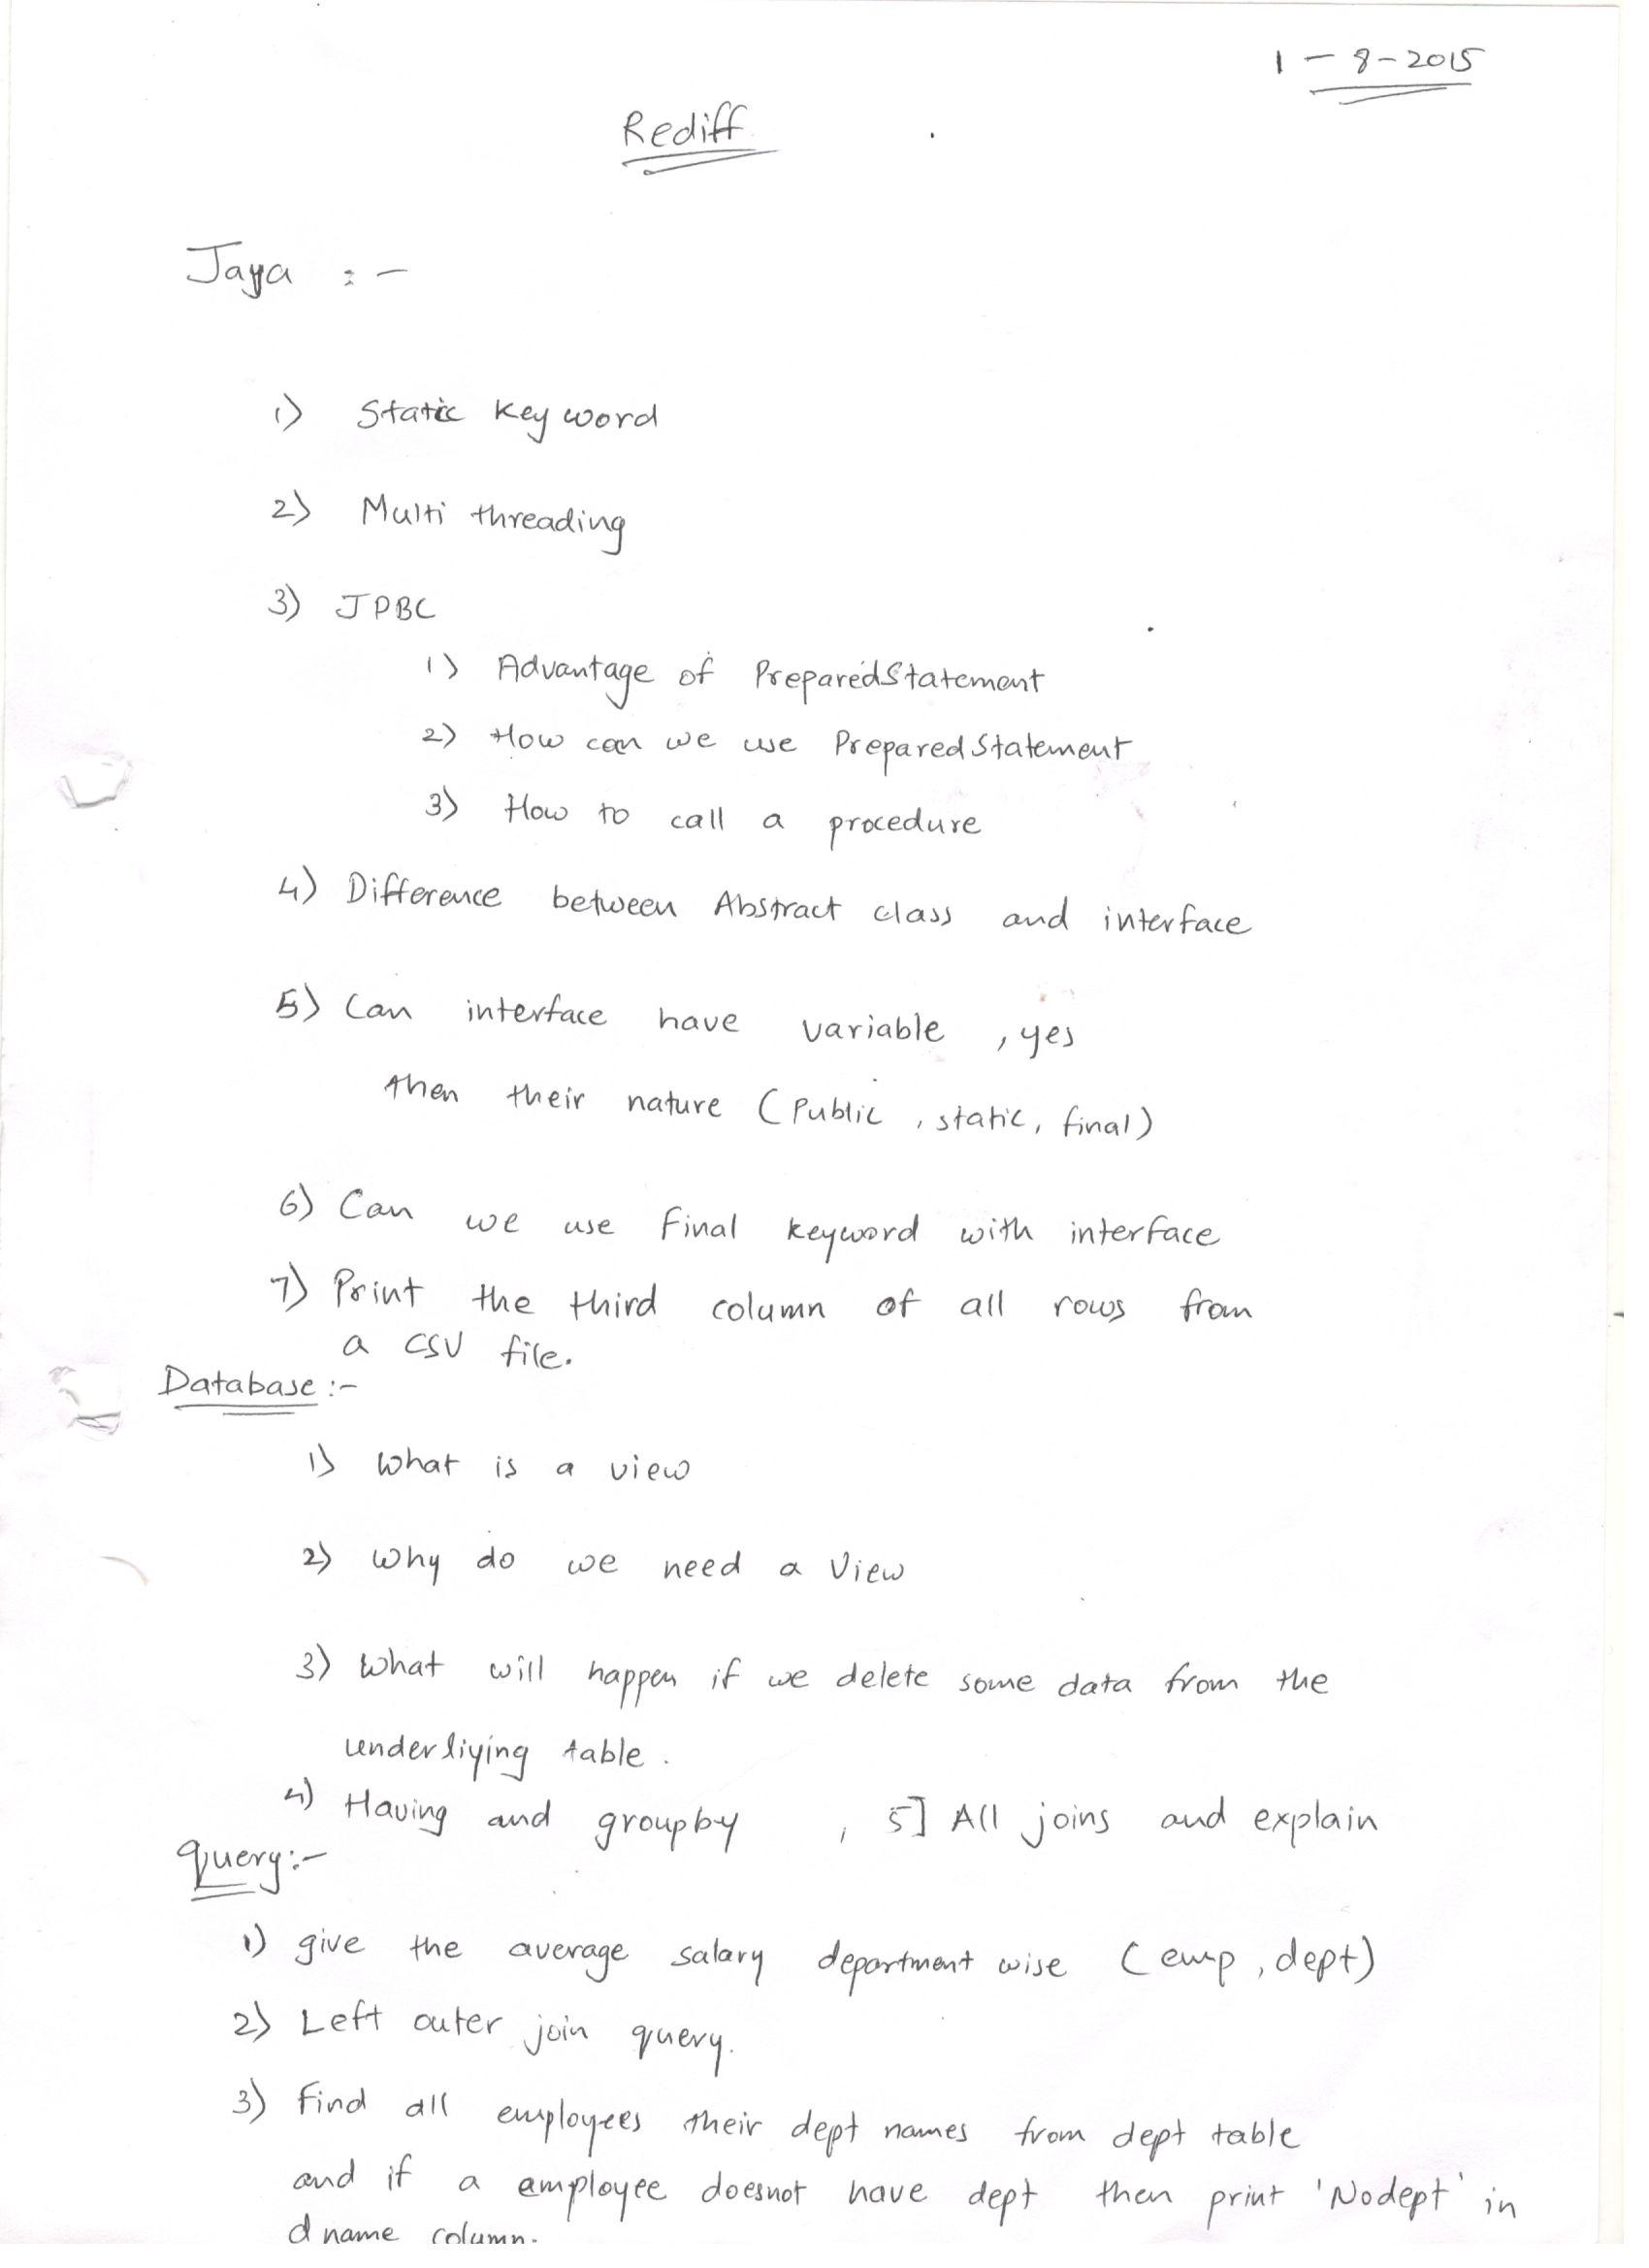 1 - 8 - 2015
Rediff
Jaya :-
1) Static Key word
2) Multi threading
3) JDBC
1) Advantage of PreparedStatement
2) How can we use Prepared Statement
3) How to call a procedure
4) Difference between Abstract class and interface
5) Can interface have variable , yes
then their nature (Public , static, final)
6) Can we use final keyword with interface
7) Print the third column of all rows from
a CSV file.
Database :-
1) What is a view
2) Why do we need a View
3) What will happen if we delete some data from the
underliying table .
4) Having and groupby , 5] All joins and explain
query:-
1) give the average salary department wise (emp , dept)
2) Left outer join query.
3) Find all employees their dept names from dept table
and if a employee doesnot have dept then print 'Nodept' in
dname column.